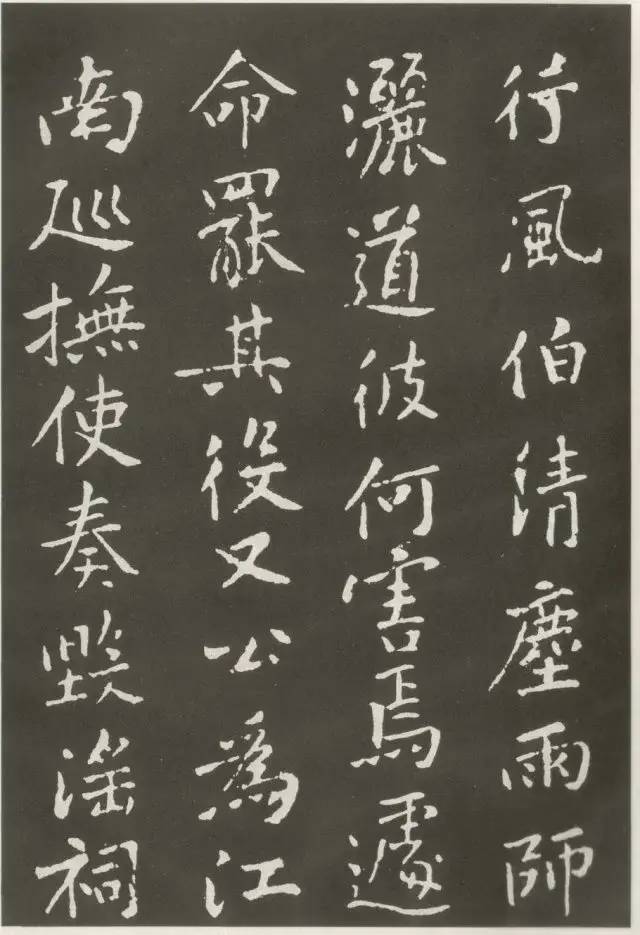 行風伯清塵雨師
灑道彼何害焉遽
命罷其役又公爲江
南巡撫使奏毀淫祠